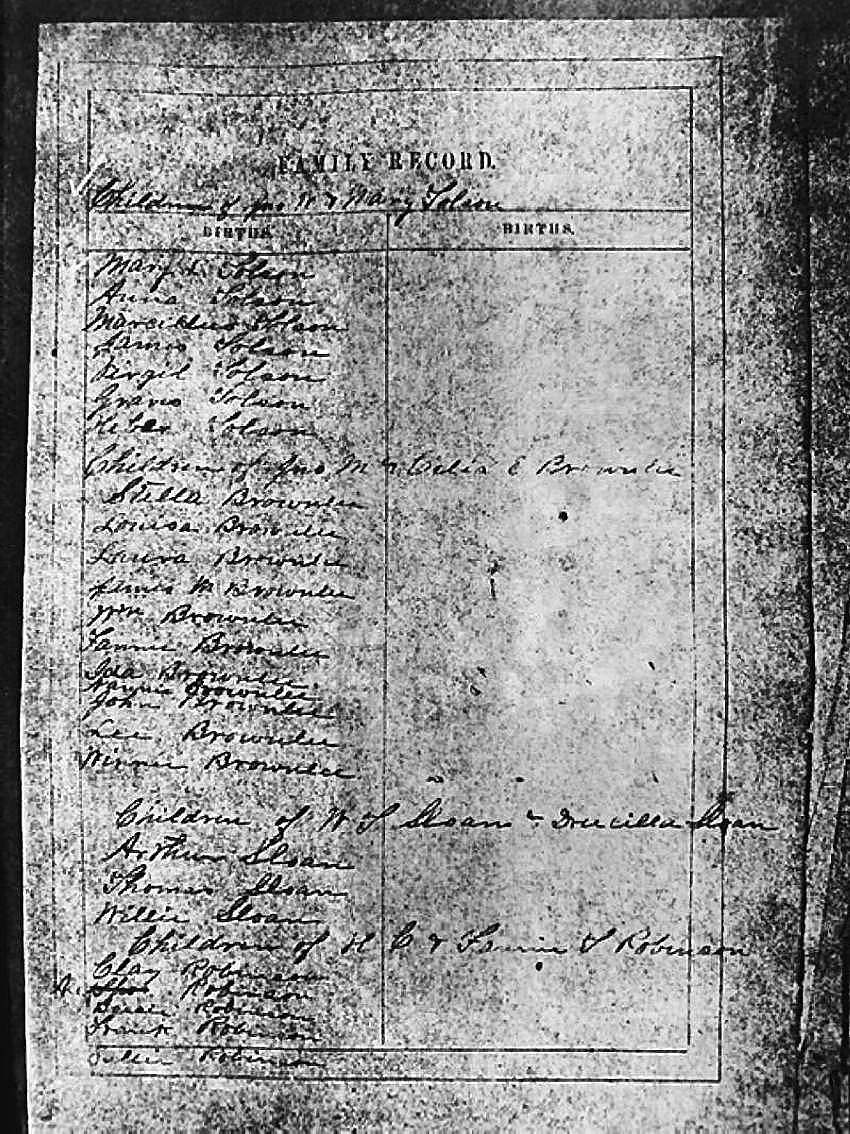 FAMILY RECORD.
Children of Jno W & Mary Tolson
BIRTHS. BIRTHS.
Mary L Tolson
Anna Tolson
Marcellus Tolson
James Tolson
Virgil Tolson
Tolson
Tolson
Children of Jno M & E Brownlee
Stella Brownlee
Louisa Brownlee
Laura Brownlee
James M Brownlee
Wm Brownlee
Fannie Brownlee
Ida Brownlee
Brownlee
John Brownlee
Lee Brownlee
Winnie Brownlee
Children of W T Sloan & Drucilla Sloan
Arthur Sloan
Thomas Sloan
Willie Sloan
Children of H C & Fannie T Robinson
Clay Robinson
Robinson
Robinson
Frank Robinson
Robinson